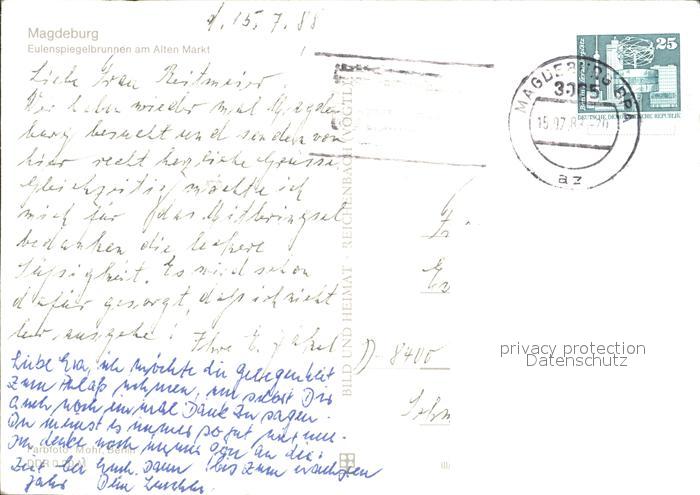 d. 15.7.88
Magdeburg
Eulenspiegelbrunnen am Alten Markt
Liebe Frau Reitmeier,
Wir haben wieder mal Magde-
burg besucht und senden von
hier recht herzliche Grüsse
Gleichzeitig möchte ich
mich für das Mitbringsel
bedanken die leckere
Süssigkeit. Es wird schon
dafür gesorgt, daß ich nicht
leer ausgehe! Ihre E.
Liebe Eva, ich möchte die Gelegenheit
zum Anlaß nehmen, um selbst Dir
auch noch einmal Dank zu sagen.
Du meinst es immer so gut mit mir.
Ich denke noch immer gern an die
Zeit bei Euch. Dann bis zum nächsten
Jahr Dein
Farbfoto: Mohr, Berlin
BILD UND HEIMAT · REICHENBACH (VOGTL)
25
DEUTSCHE DEMOKRATISCHE REPUBLIK
MAGDEBURG BPA
3005
15.07.88
az
D-8400
privacy protection
Datenschutz